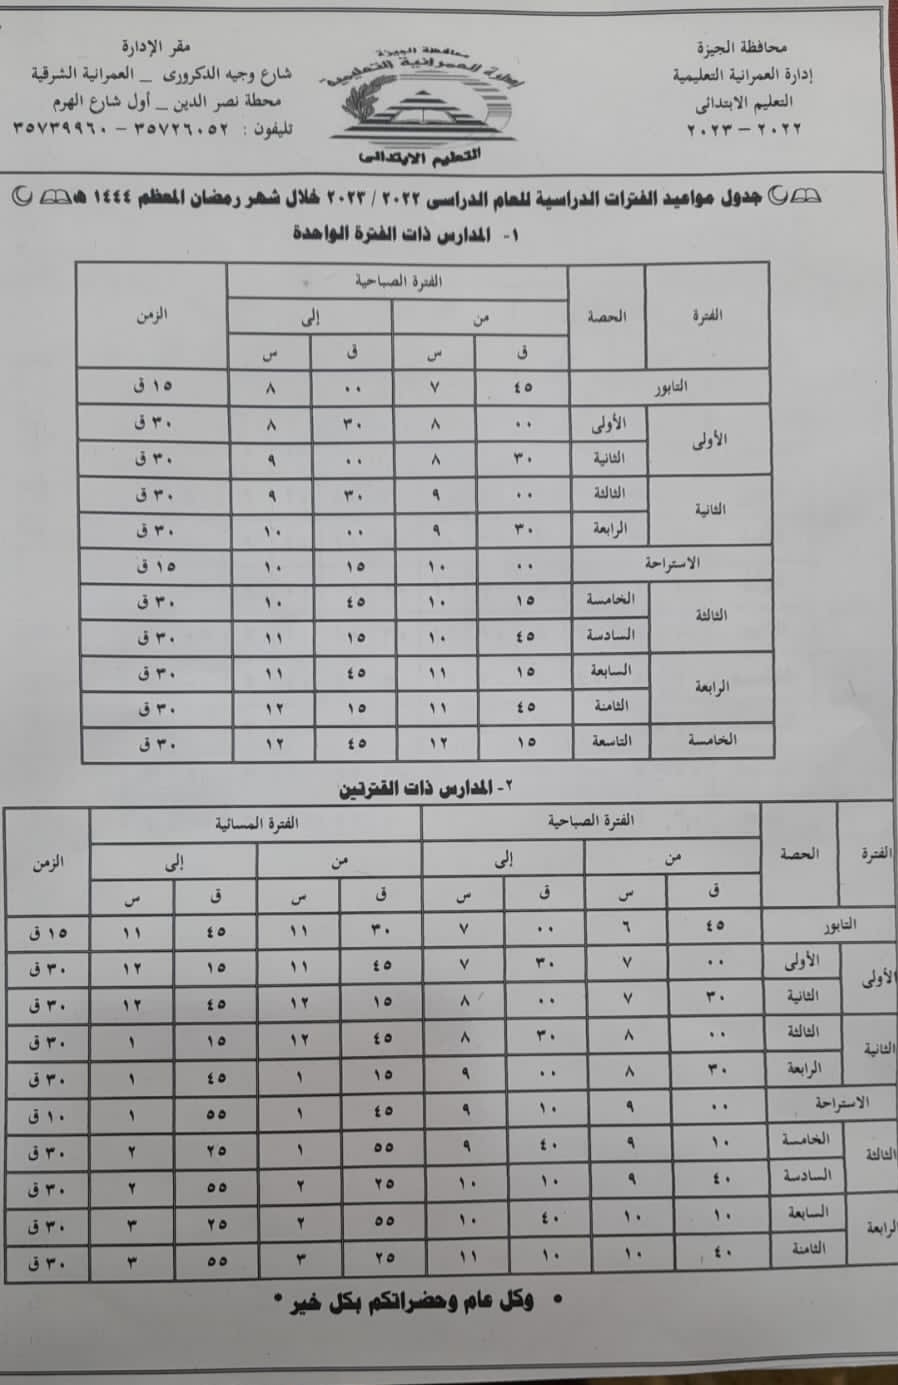 محافظة الجيزة
إدارة العمرانية التعليمية
التعليم الابتدائى
٢٠٢٢ – ٢٠٢٣
محافظة الجيزة
إدارة العمرانية التعليمية
التعليم الابتدائى
مقر الإدارة
شارع وجيه الدكرورى _ العمرانية الشرقية
محطة نصر الدين _ أول شارع الهرم
تليفون : ٣٥٧٢٦٠٥٢ – ٣٥٧٣٩٩٦٠
جدول مواعيد الفترات الدراسية للعام الدراسى ٢٠٢٢ / ٢٠٢٣ خلال شهر رمضان المعظم ١٤٤٤ هـ
١- المدارس ذات الفترة الواحدة
الفترة الحصة الفترة الصباحية الزمن
من إلى
ق س ق س
التابور ٤٥ ٧ ٠٠ ٨ ١٥ ق
الأولى الأولى ٠٠ ٨ ٣٠ ٨ ٣٠ ق
الثانية ٣٠ ٨ ٠٠ ٩ ٣٠ ق
الثانية الثالثة ٠٠ ٩ ٣٠ ٩ ٣٠ ق
الرابعة ٣٠ ٩ ٠٠ ١٠ ٣٠ ق
الاستراحة ٠٠ ١٠ ١٥ ١٠ ١٥ ق
الثالثة الخامسة ١٥ ١٠ ٤٥ ١٠ ٣٠ ق
السادسة ٤٥ ١٠ ١٥ ١١ ٣٠ ق
الرابعة السابعة ١٥ ١١ ٤٥ ١١ ٣٠ ق
الثامنة ٤٥ ١١ ١٥ ١٢ ٣٠ ق
الخامسة التاسعة ١٥ ١٢ ٤٥ ١٢ ٣٠ ق
٢- المدارس ذات الفترتين
الفترة الحصة الفترة الصباحية الفترة المسائية الزمن
من إلى من إلى
ق س ق س ق س ق س
التابور ٤٥ ٦ ٠٠ ٧ ٣٠ ١١ ٤٥ ١١ ١٥ ق
الأولى الأولى ٠٠ ٧ ٣٠ ٧ ٤٥ ١١ ١٥ ١٢ ٣٠ ق
الثانية ٣٠ ٧ ٠٠ ٨ ١٥ ١٢ ٤٥ ١٢ ٣٠ ق
الثانية الثالثة ٠٠ ٨ ٣٠ ٨ ٤٥ ١٢ ١٥ ١ ٣٠ ق
الرابعة ٣٠ ٨ ٠٠ ٩ ١٥ ١ ٤٥ ١ ٣٠ ق
الاستراحة ٠٠ ٩ ١٠ ٩ ٤٥ ١ ٥٥ ١ ١٠ ق
الثالثة الخامسة ١٠ ٩ ٤٠ ٩ ٥٥ ١ ٢٥ ٢ ٣٠ ق
السادسة ٤٠ ٩ ١٠ ١٠ ٢٥ ٢ ٥٥ ٢ ٣٠ ق
الرابعة السابعة ١٠ ١٠ ٤٠ ١٠ ٥٥ ٢ ٢٥ ٣ ٣٠ ق
الثامنة ٤٠ ١٠ ١٠ ١١ ٢٥ ٣ ٥٥ ٣ ٣٠ ق
• وكل عام وحضراتكم بكل خير *